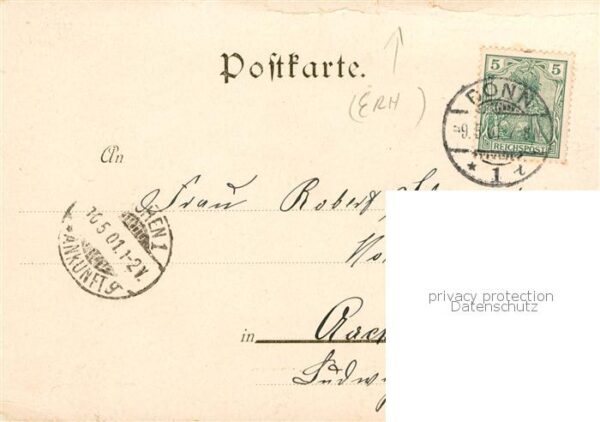 Postkarte.
(ERH)
5 5
REICHSPOST
BONN
9.5.01
* 1 t
An
Frau Robert
CHEN 1
10.5.01.1-2V.
*ANKUNFT.g
privacy protection
Datenschutz
in